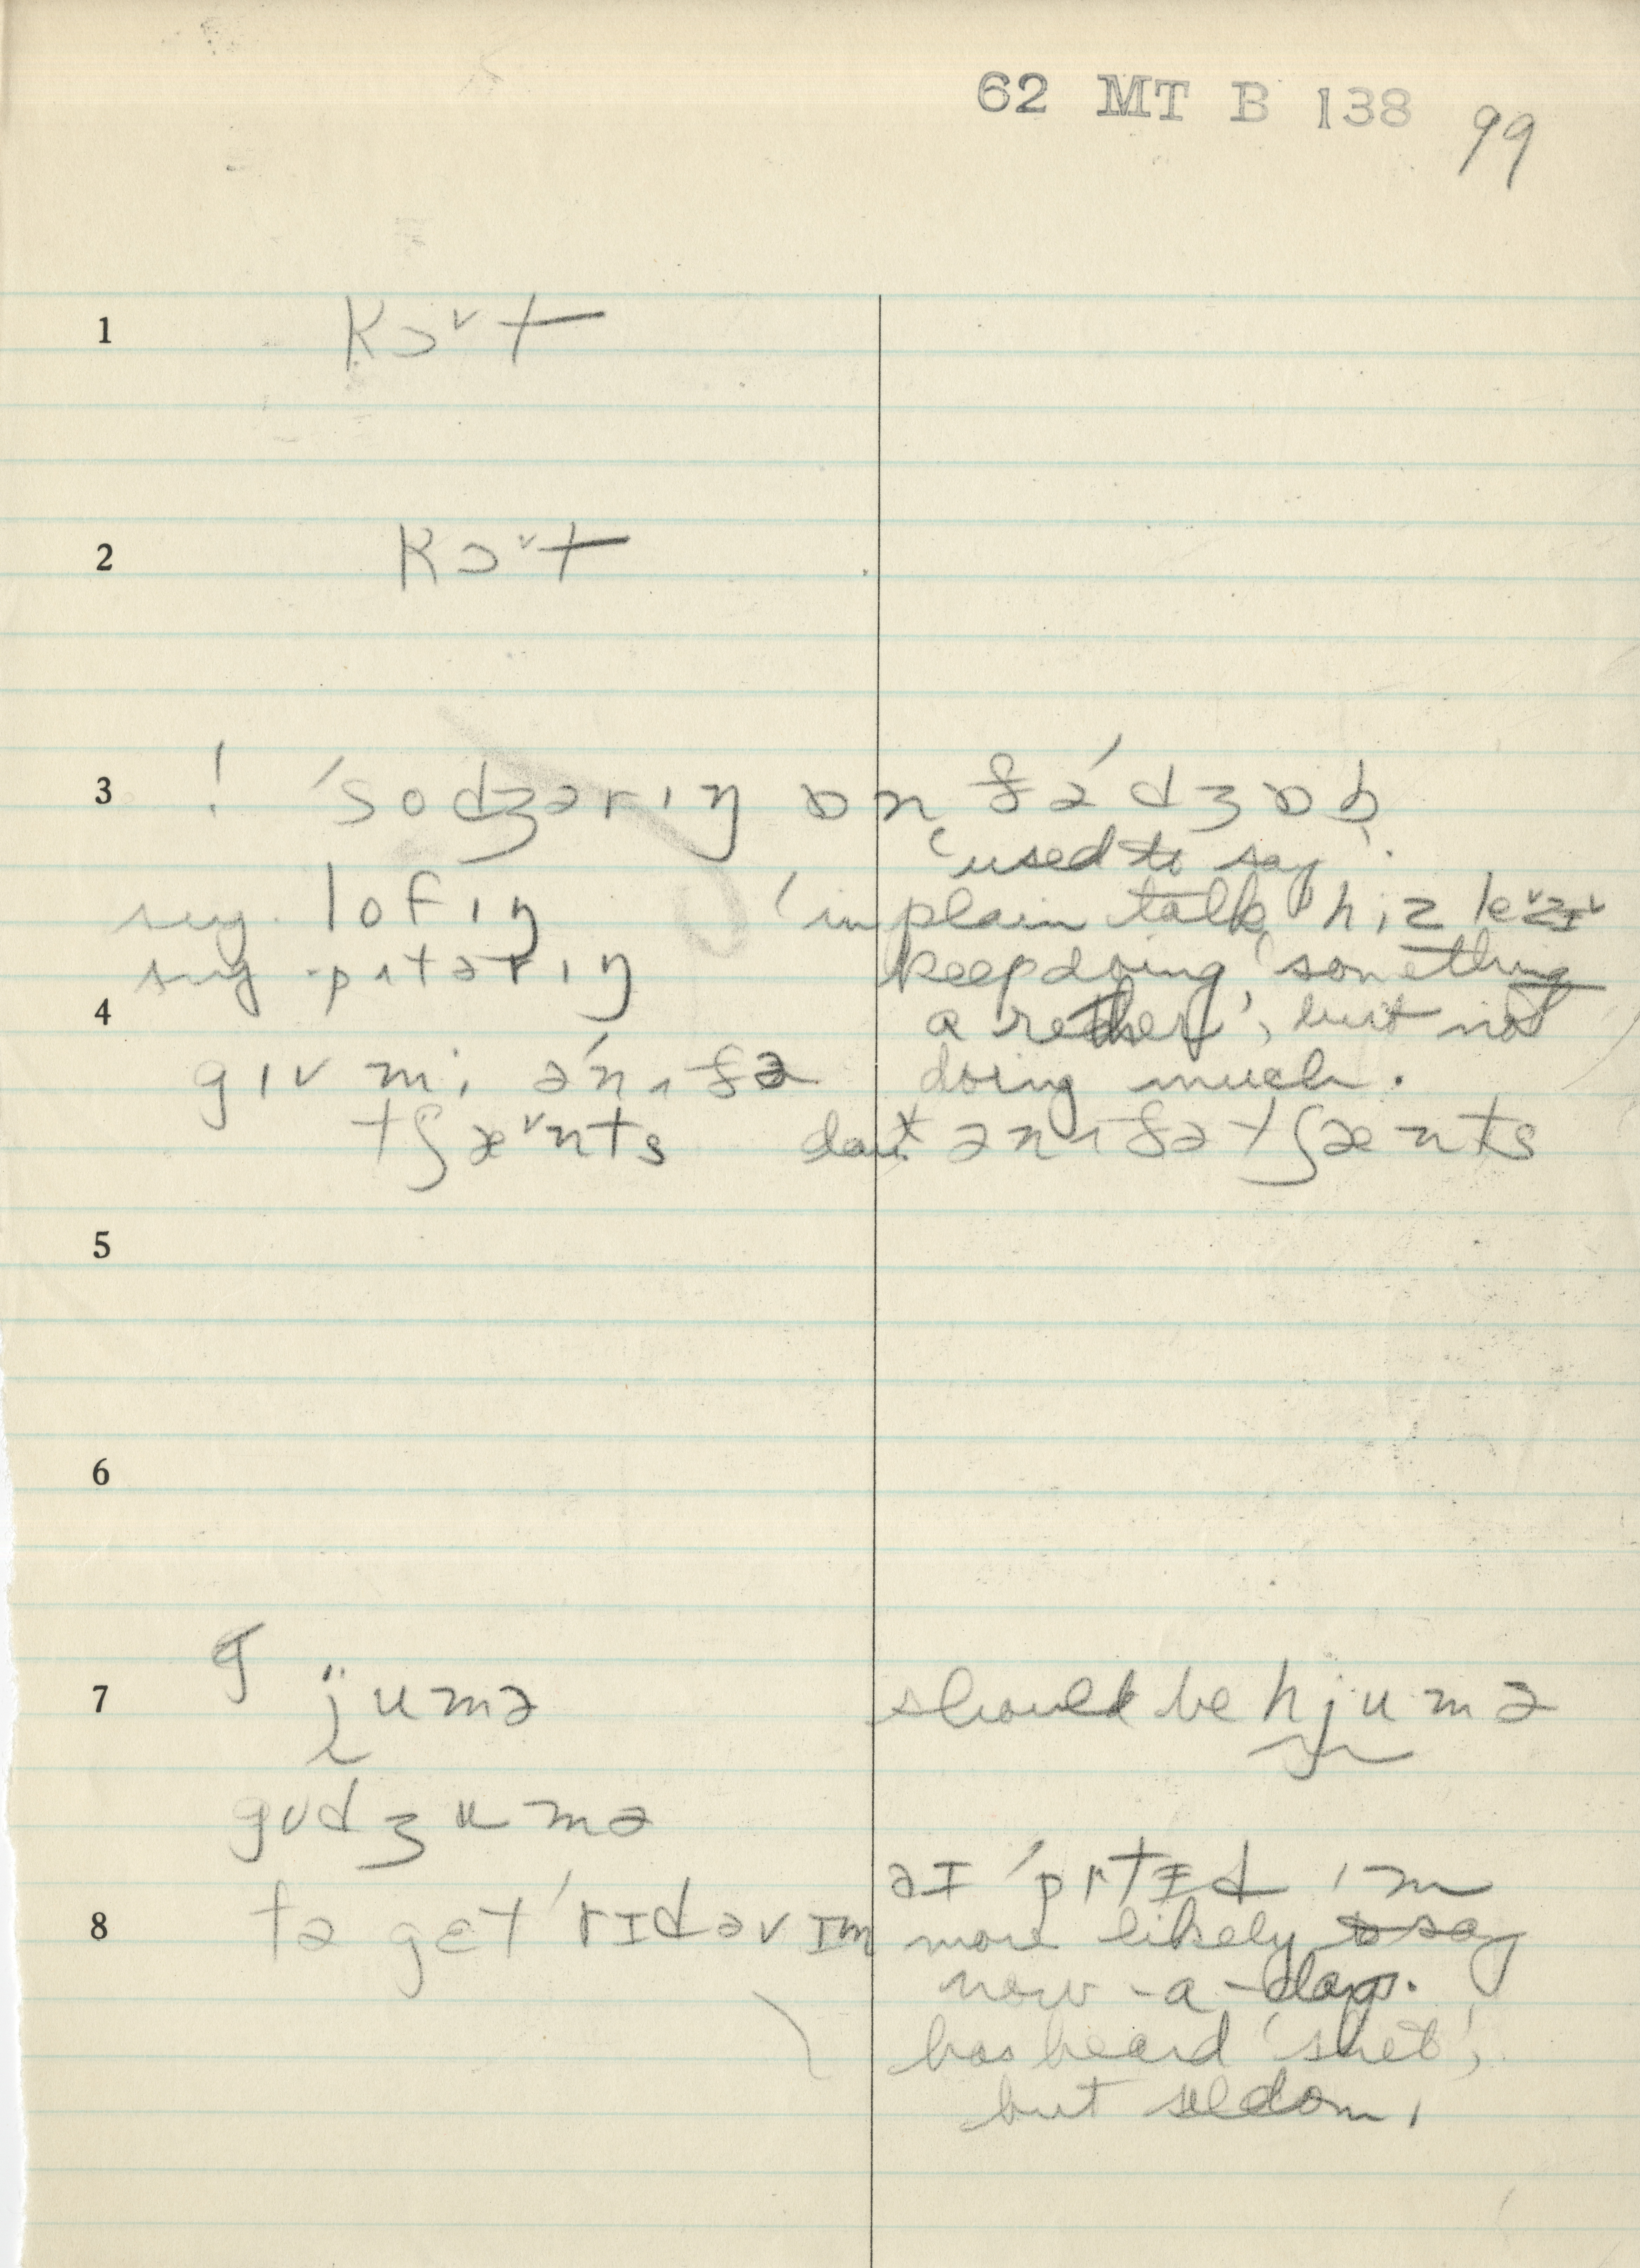 62 MT B 138 99
1 kɔ˅t
2 kɔ˅t
3 ! ˈsodʒərɪŋ ɒn ðəˈdʒɒb
'used to say'.
sug. lofɪŋ 'in plain talk' hiz
sug. pʌtərɪŋ keep doing 'something
4 a rether', but not
gɪv mi ən ʌðə doing much.
tʃæ˅nts dout ənʌðə tʃænts
5
6
g
7 jumə should be hjumə
gʊdʒumə
aɪ ˈ
8 tə gɛt ˈrɪdəvɪm more likely to say
now-a-days.
has heard 'shet',
but seldom,